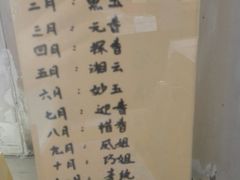 二月：黛玉
三月：元春
四月：探春
五月：湘云
六月：妙玉
七月：迎春
八月：惜春
九月：凤姐
十月：巧姐